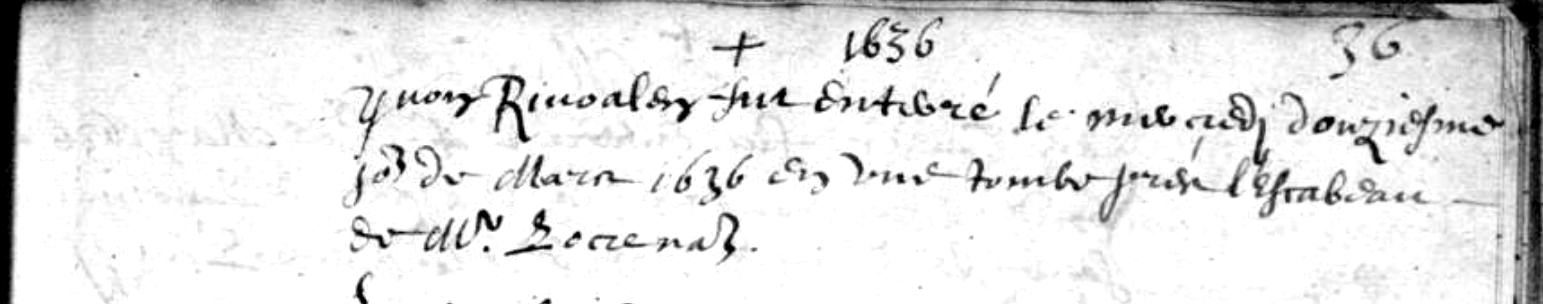 + 1636 36
yuon Riuoalen fut enterré le mercredj douziesme
jor de Mars 1636 en vne tombe pres l'Escabeau
de Mr. Locrenaz.